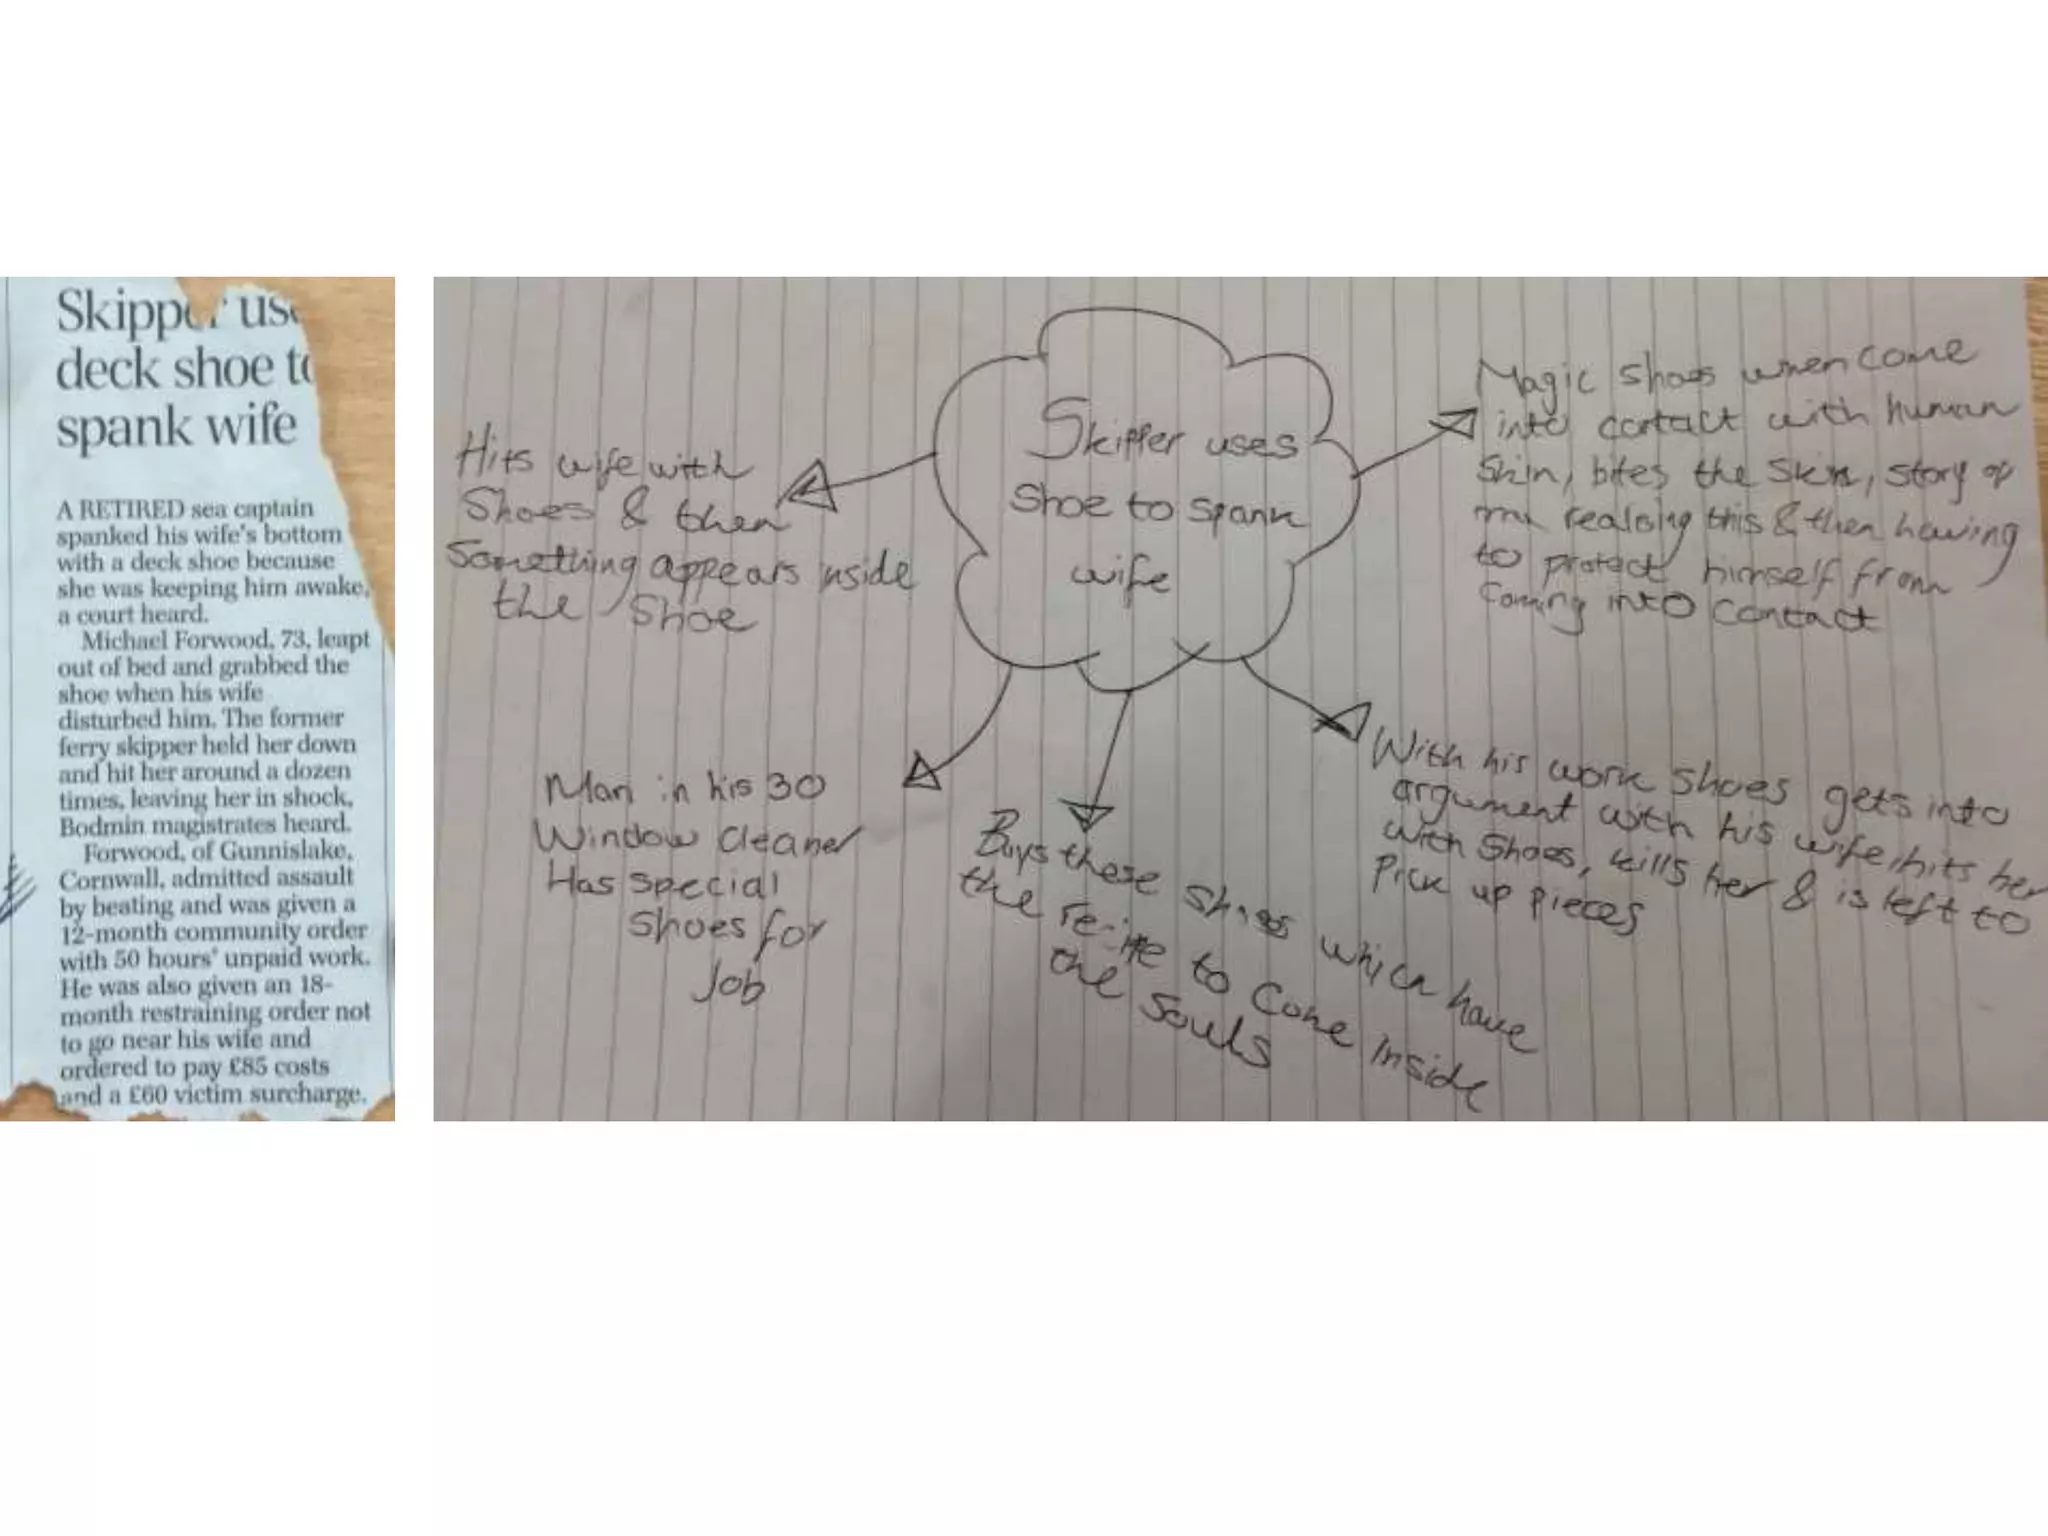 Skipper us
deck shoe to
spank wife
A RETIRED sea captain
spanked his wife's bottom
with a deck shoe because
she was keeping him awake,
a court heard.
Michael Forwood, 73, leapt
out of bed and grabbed the
shoe when his wife
disturbed him. The former
ferry skipper held her down
and hit her around a dozen
times, leaving her in shock,
Bodmin magistrates heard.
Forwood, of Gunnislake,
Cornwall, admitted assault
by beating and was given a
12-month community order
with 50 hours' unpaid work.
He was also given an 18-
month restraining order not
to go near his wife and
ordered to pay £85 costs
and a £60 victim surcharge.
Skipper uses
shoe to spank
wife
Hits wife with
Shoes & then
Something appears inside
the shoe
Magic shoes when come
into contact with human
skin, bites the skin, story of
man realising this & then having
to protect himself from
coming into contact
Man in his 30
Window cleaner
Has special
shoes for
Job
Buys these shoes which have
the to come inside
the souls
With his work shoes gets into
argument with his wife, hits her
with shoes, kills her & is left to
Pick up pieces